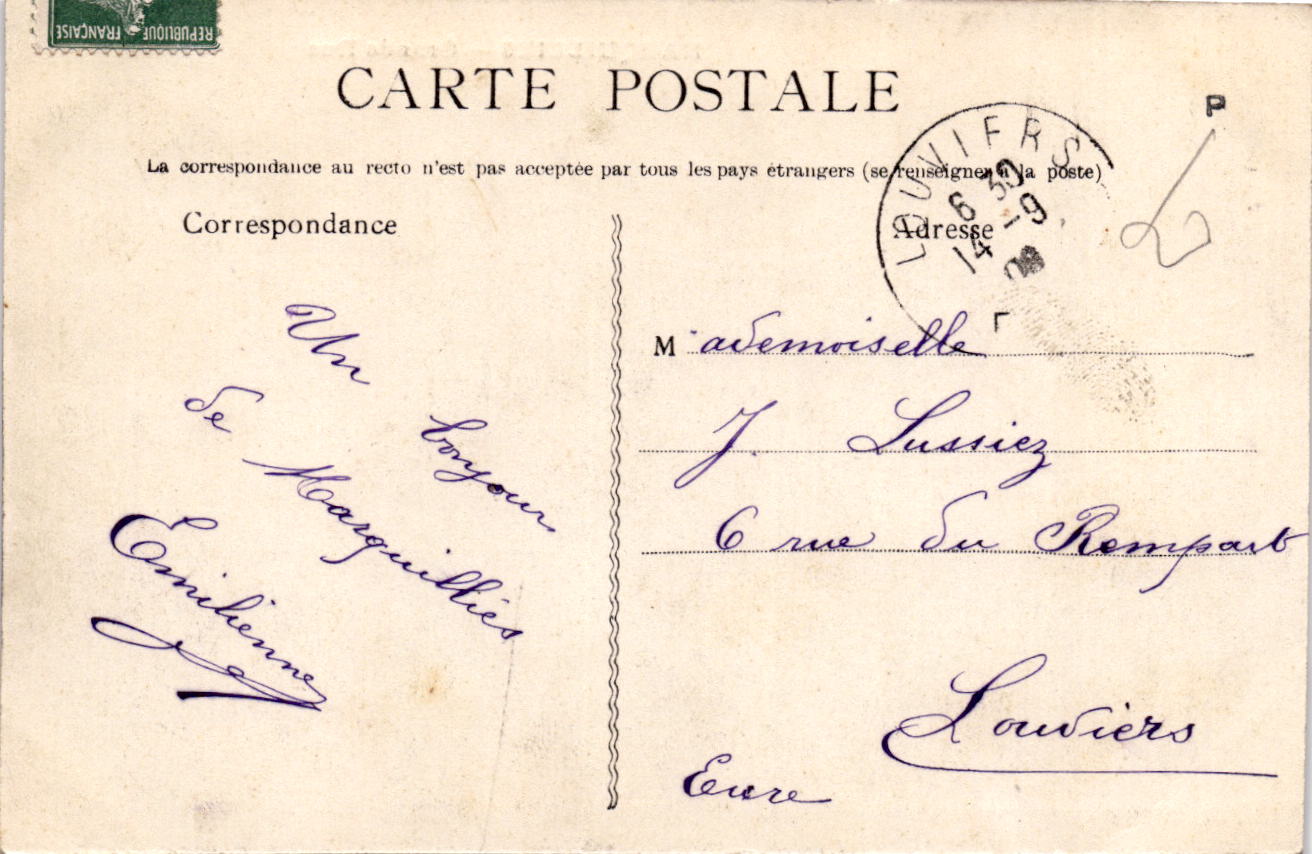 REPUBLIQUE FRANÇAISE
CARTE POSTALE
La correspondance au recto n'est pas acceptée par tous les pays étrangers (se renseigner à la poste)
Correspondance
Adresse
LOUVIERS
6 30
14 - 9
P
Un bonjour
de Marquilliés
Emilienne
Mademoiselle
J. Lussiez
6 rue du Rempart
Louviers
Eure